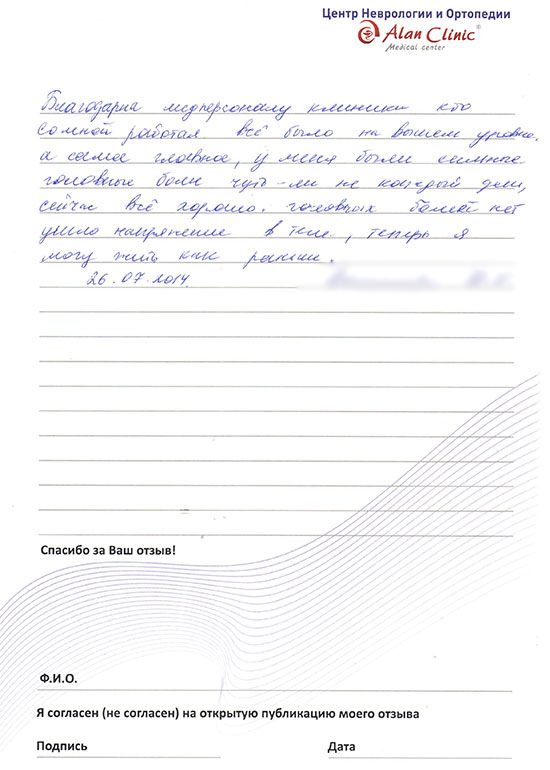 Центр Неврологии и Ортопедии
Alan Clinic®
Medical center
Благодарна медперсоналу клиники кто
со мной работал всё было на вышем уровне,
а самое главное, у меня были сильные
головные боли чуть-ли не каждый день,
сейчас всё хорошо. головных болей нет
ушло напряжение в теле, теперь я
могу жить как раньше.
26.07.2014
Спасибо за Ваш отзыв!
Ф.И.О.
Я согласен (не согласен) на открытую публикацию моего отзыва
Подпись Дата